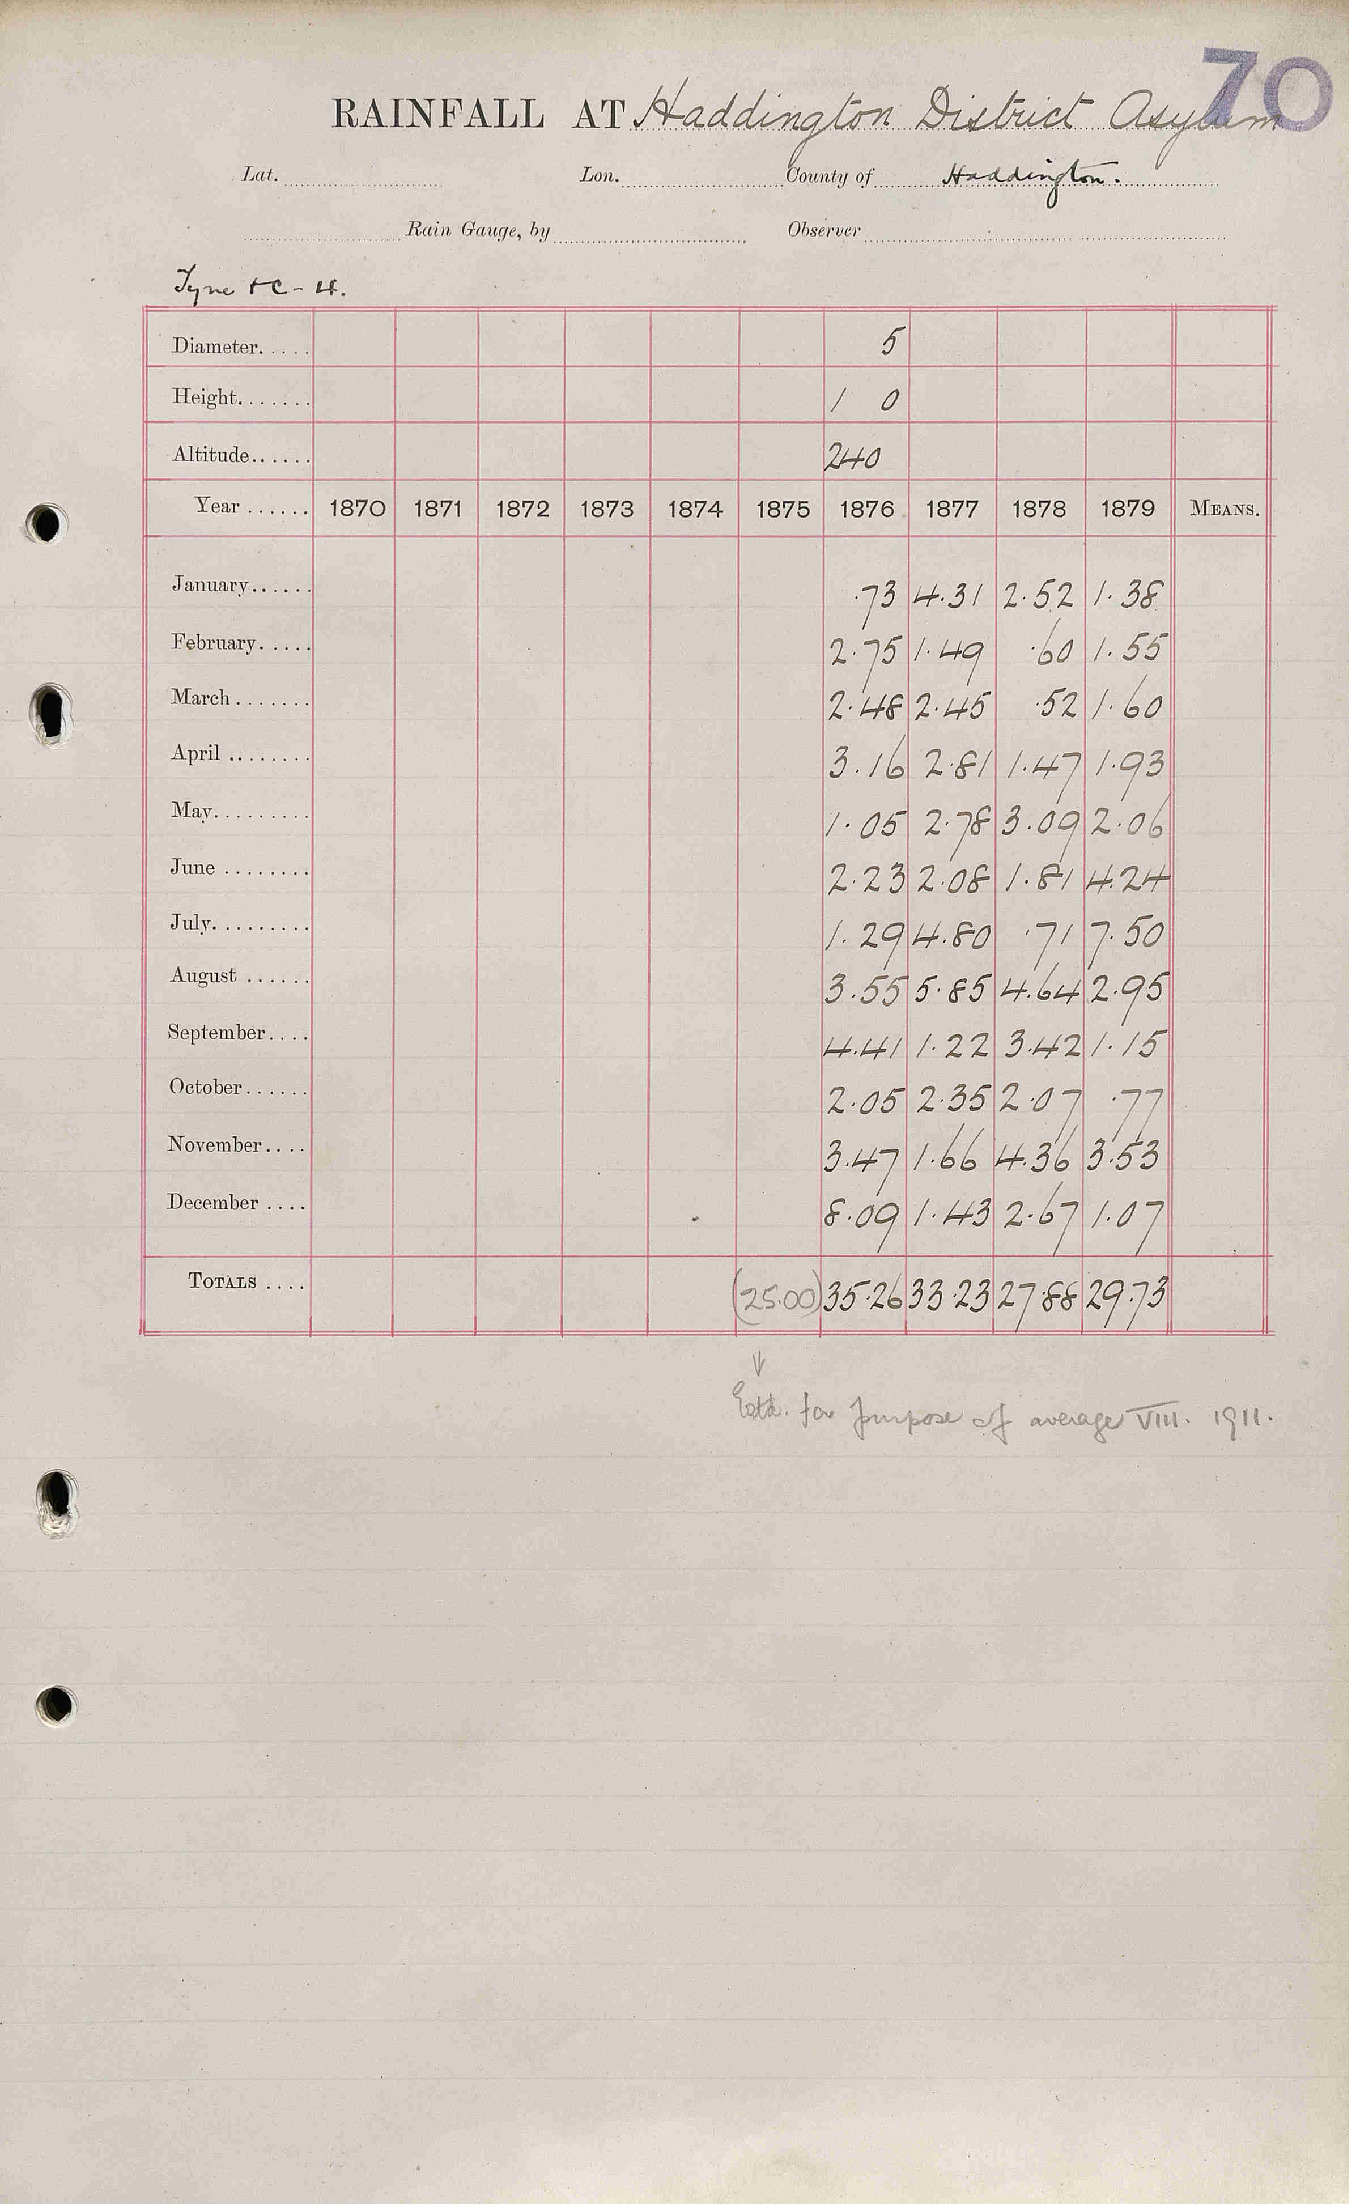 70
RAINFALL AT Haddington District Asylum
Lat. Lon. County of Haddington.
Rain Gauge, by Observer
Tyne + C - H.
Diameter..... 5
Height....... 1 0
Altitude...... 240
Year ...... 1870 1871 1872 1873 1874 1875 1876 1877 1878 1879 MEANS.
January...... .73 4.31 2.52 1.38
February..... 2.75 1.49 .60 1.55
March....... 2.48 2.45 .52 1.60
April ........ 3.16 2.81 1.47 1.93
May......... 1.05 2.78 3.09 2.06
June ........ 2.23 2.08 1.81 4.24
July......... 1.29 4.80 .71 7.50
August ...... 3.55 5.85 4.64 2.95
September.... 4.41 1.22 3.42 1.15
October...... 2.05 2.35 2.07 .77
November.... 3.47 1.66 4.36 3.53
December .... 8.09 1.43 2.67 1.07
TOTALS .... (25.00) 35.26 33.23 27.88 29.73
Estd. for purpose of average VIII. 1911.